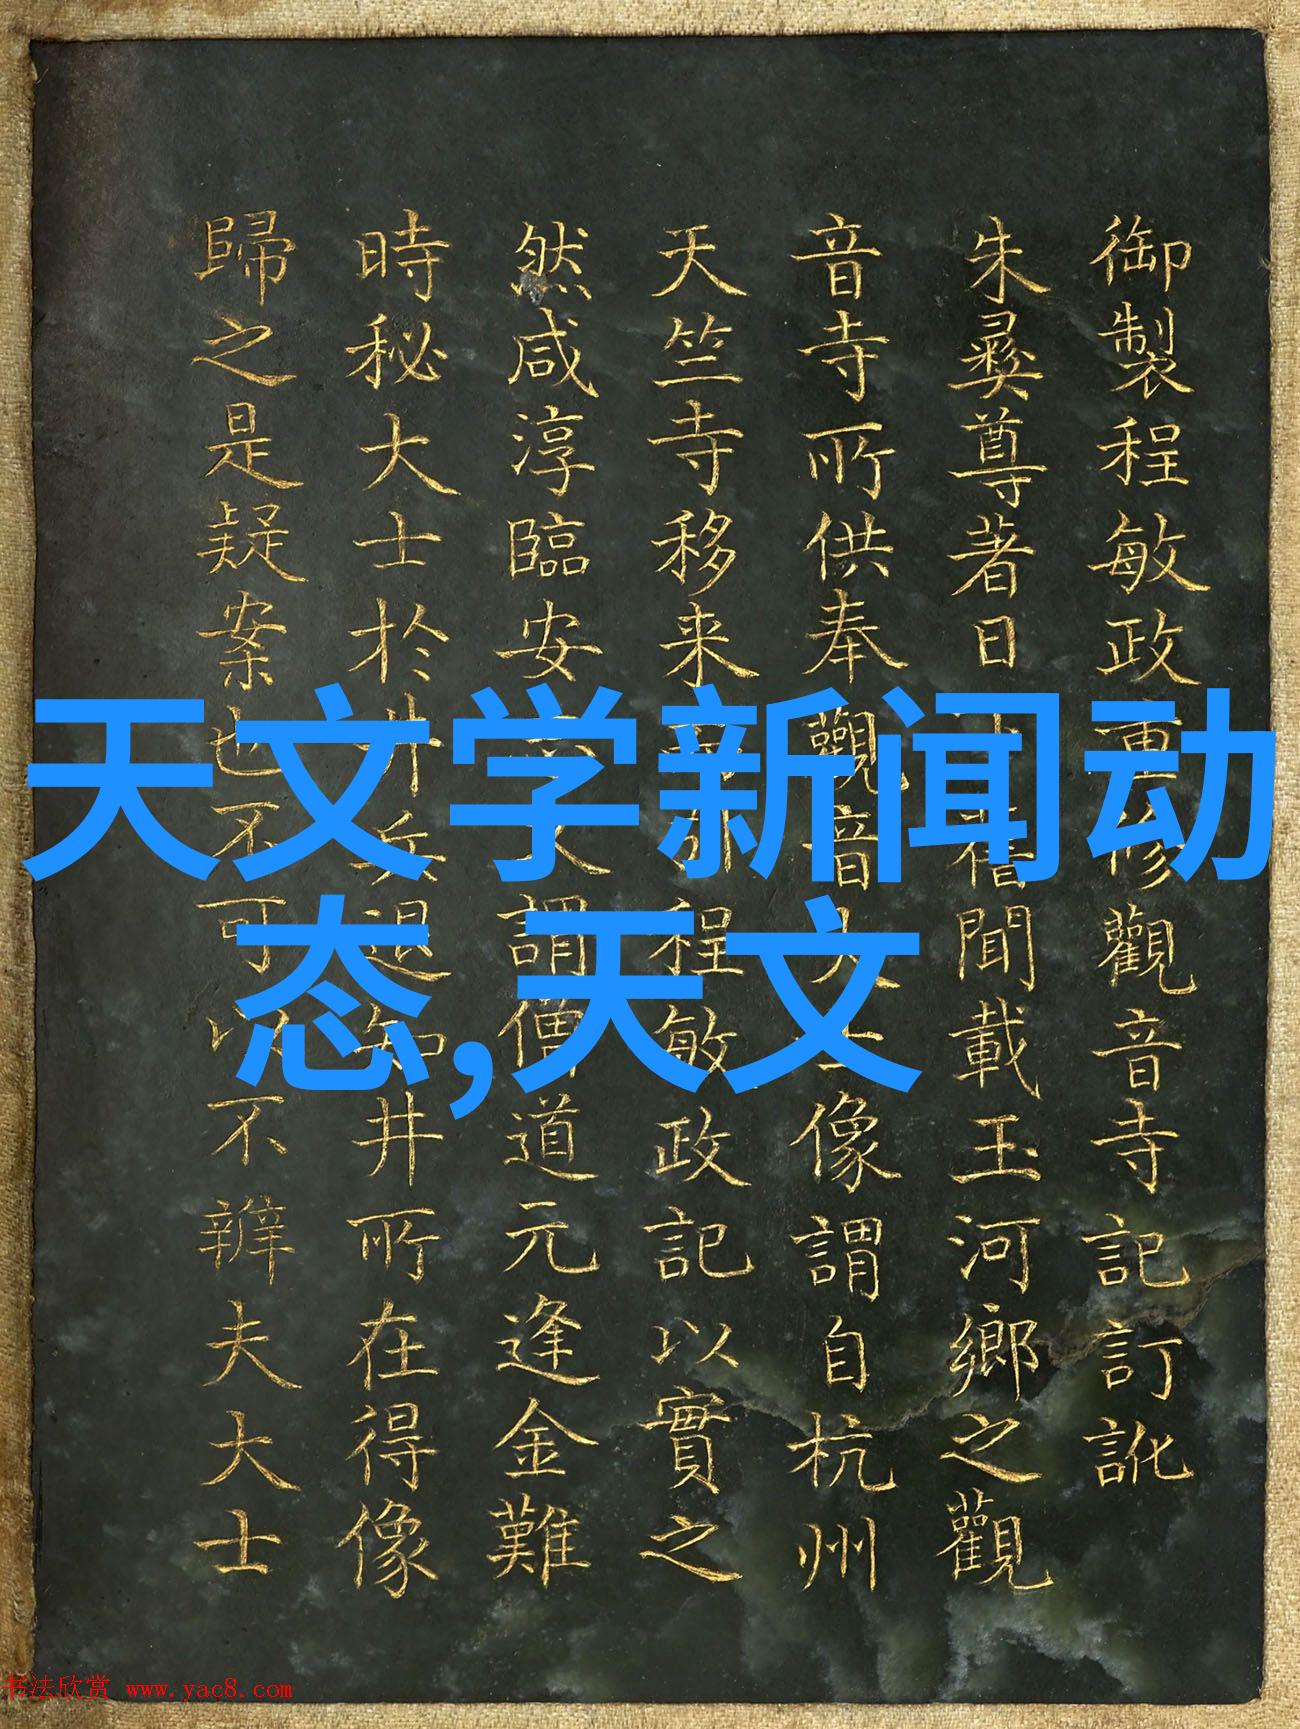 御製程敏政重修觀音寺記訂訛
朱彝尊著日舊聞載玉河鄉之觀
音寺所供奉觀音大士像謂自杭州
天竺寺移来程敏政記以實之
然咸淳臨安謂僧道元逢金難
時秘大士於井兵退知井所在得像
歸之是疑案也不可以不辨夫大士
天文学新闻动
态,天文
书法欣赏 www.yac8.com